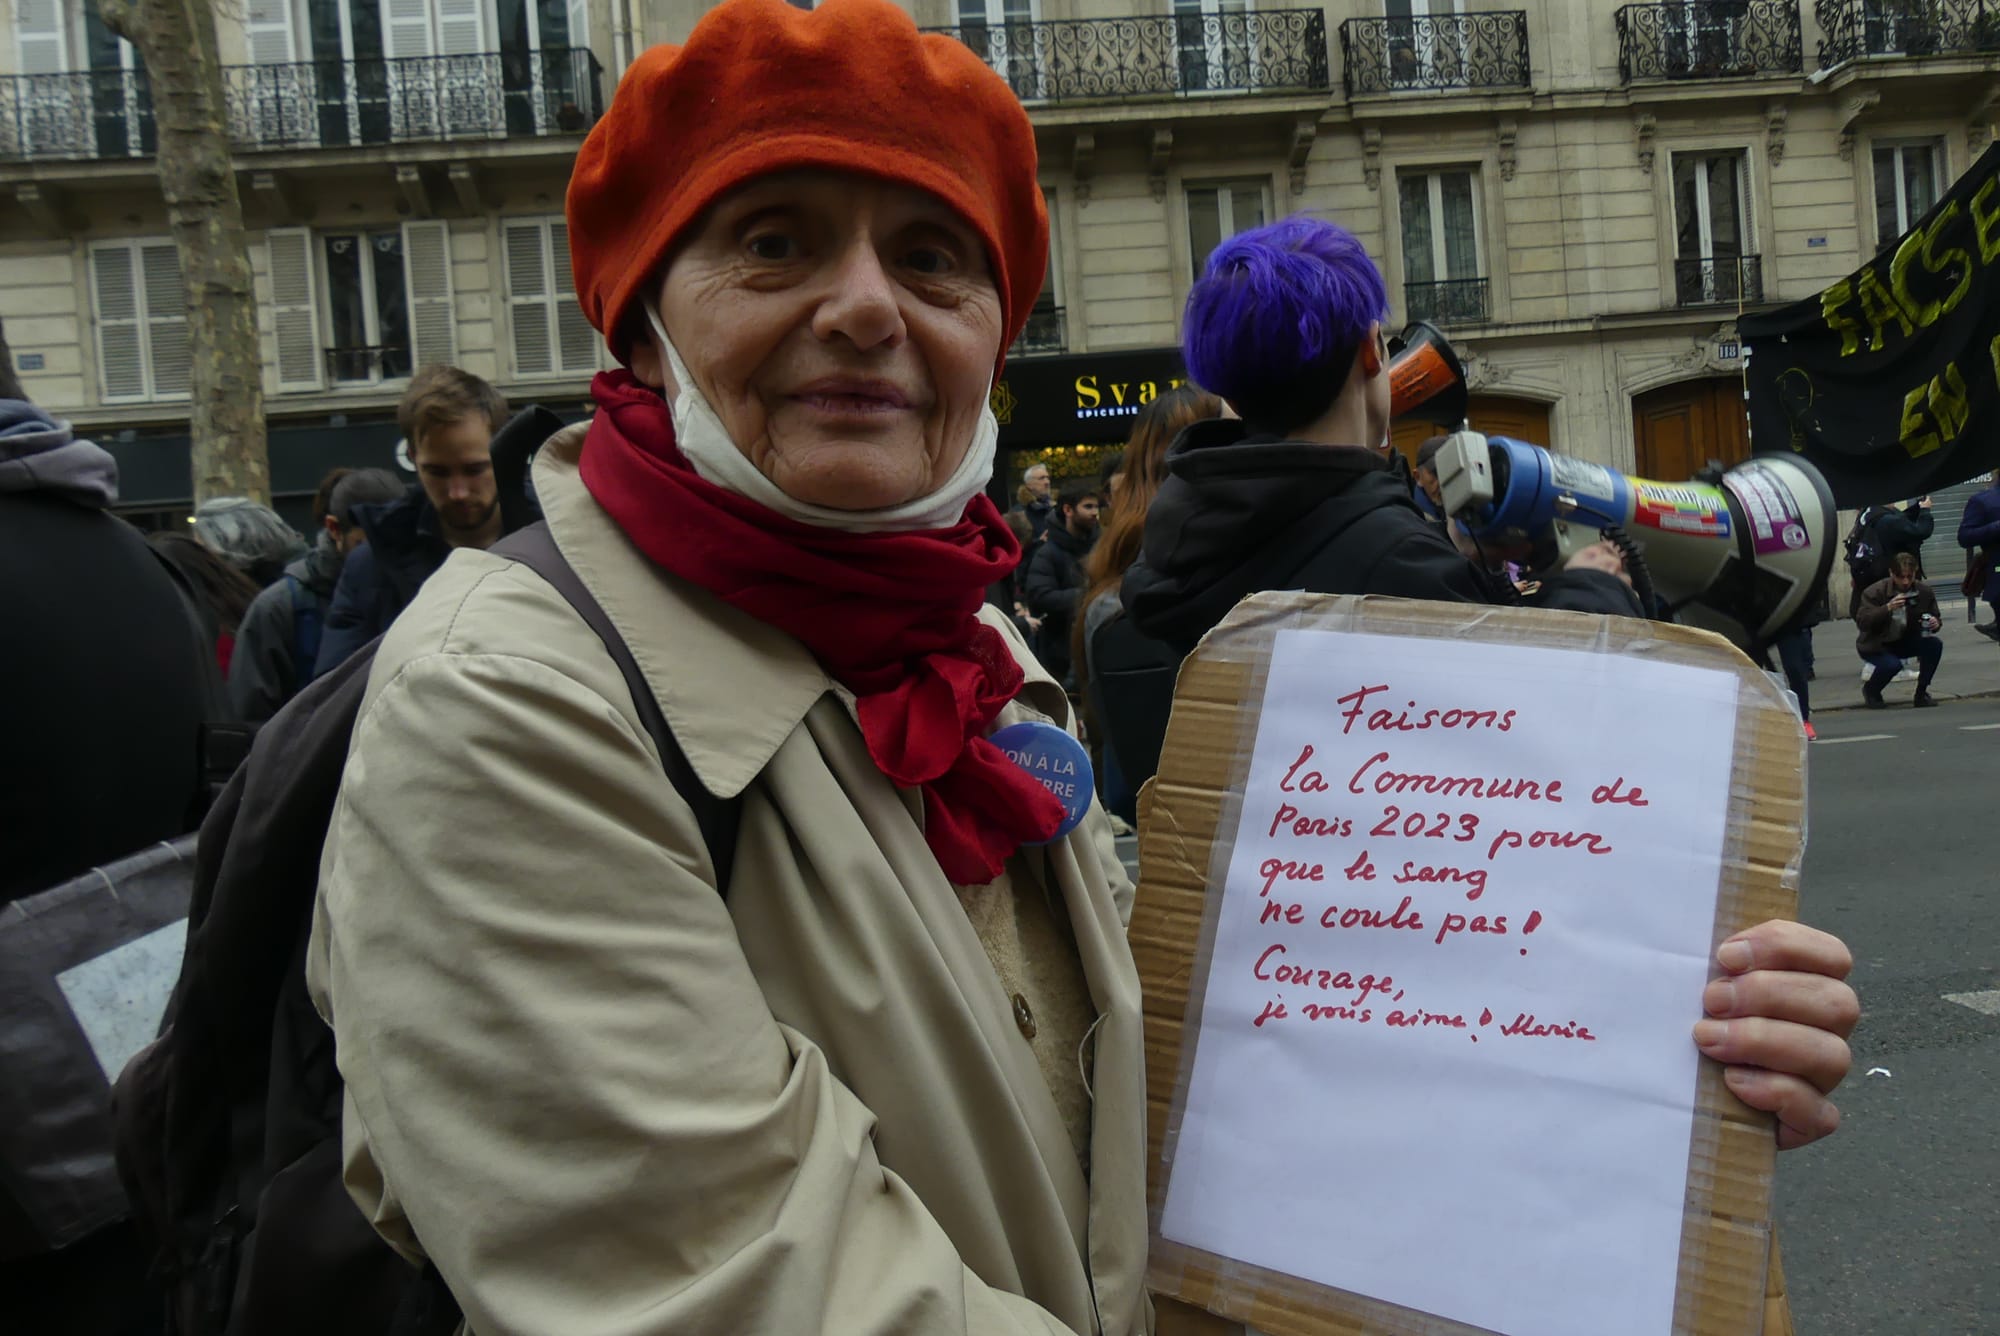 Svar
EPICERIE
118
FACS E
EN
NON À LA
ERRE
!
Faisons
la Commune de
Paris 2023 pour
que le sang
ne coule pas !
Courage,
je vous aime ! Maria